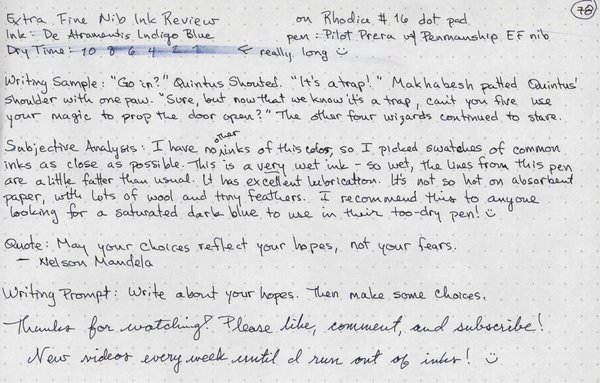 Extra Fine Nib Ink Review on Rhodia #16 dot pad 78
Ink: De Atramentis Indigo Blue pen: Pilot Prera w/ Penmanship EF nib
Dry Time: 10 8 6 4 2 1 ← really long ☺
Writing Sample: "Go in?" Quintus Shouted. "It's a trap!" Makhabesh patted Quintus'
shoulder with one paw. "Sure, but now that we know it's a trap, can't you five use
your magic to prop the door open?" The other four wizards continued to stare.
Subjective Analysis: I have no other inks of this color, so I picked swatches of common
inks as close as possible. This is a very wet ink - so wet, the lines from this pen
are a little fatter than usual. It has excellent lubrication. It's not so hot on absorbent
paper, with lots of wool and tiny feathers. I recommend this to anyone
looking for a saturated dark blue to use in their too-dry pen! ☺
Quote: May your choices reflect your hopes, not your fears.
- Nelson Mandela
Writing Prompt: Write about your hopes. Then make some choices.
Thanks for watching! Please like, comment, and subscribe!
New videos every week until I run out of inks! ☺